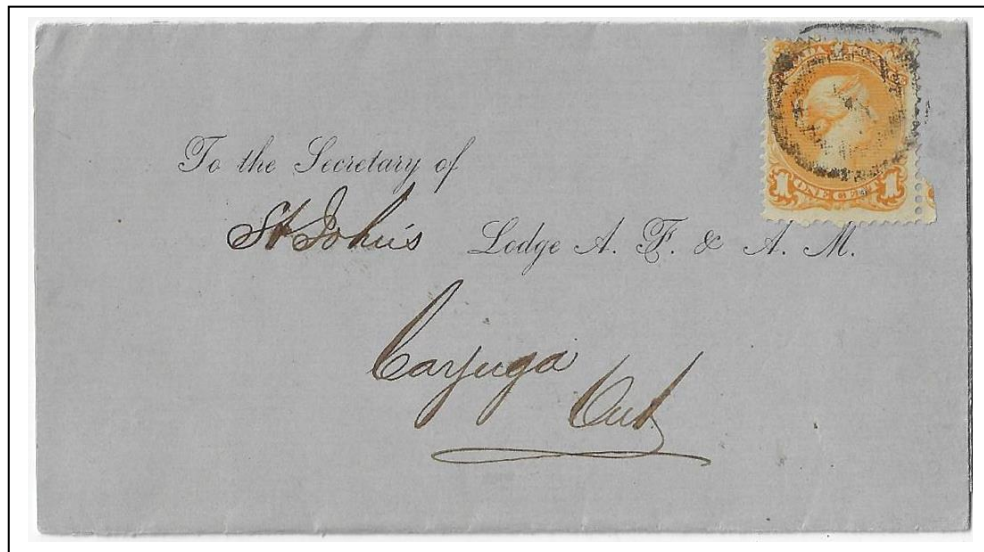 1 ONE 1
To the Secretary of
St John's Lodge A. F. & A. M.
Cayuga
Ont